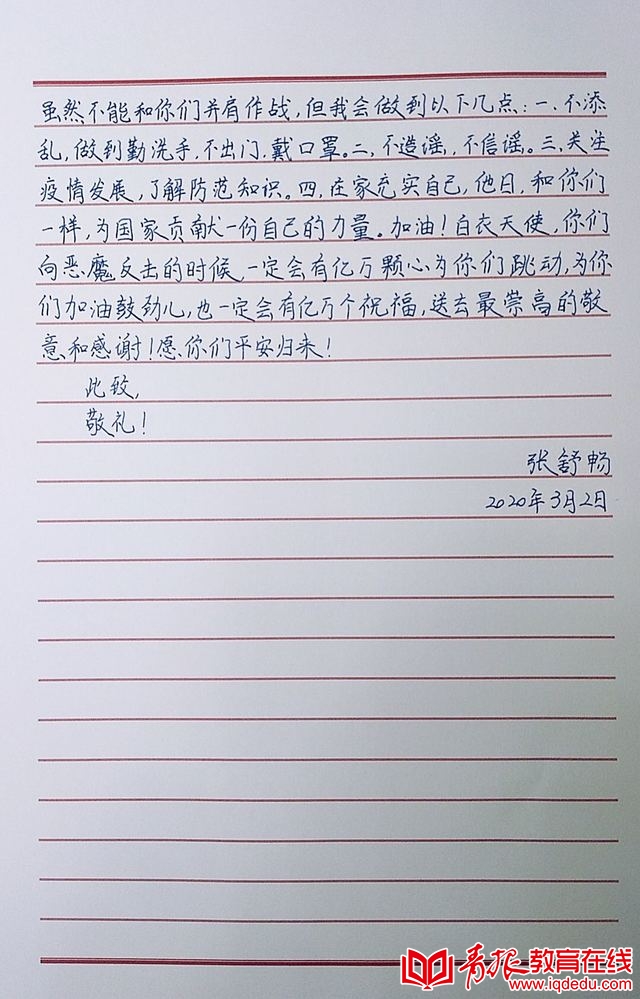 虽然不能和你们并肩作战,但我会做到以下几点:一、不添
乱,做到勤洗手,不出门,戴口罩。二、不造谣,不信谣。三、关注
疫情发展,了解防范知识。四,在家充实自己,他日,和你们
一样,为国家贡献一份自己的力量。加油!白衣天使,你们
向恶魔反击的时候,一定会有亿万颗心为你们跳动,为你
们加油鼓劲儿,也一定会有亿万个祝福,送去最崇高的敬
意和感谢!愿你们平安归来!
此致,
敬礼!
张舒畅
2020年3月2日
青报教育在线
www.iqdedu.com